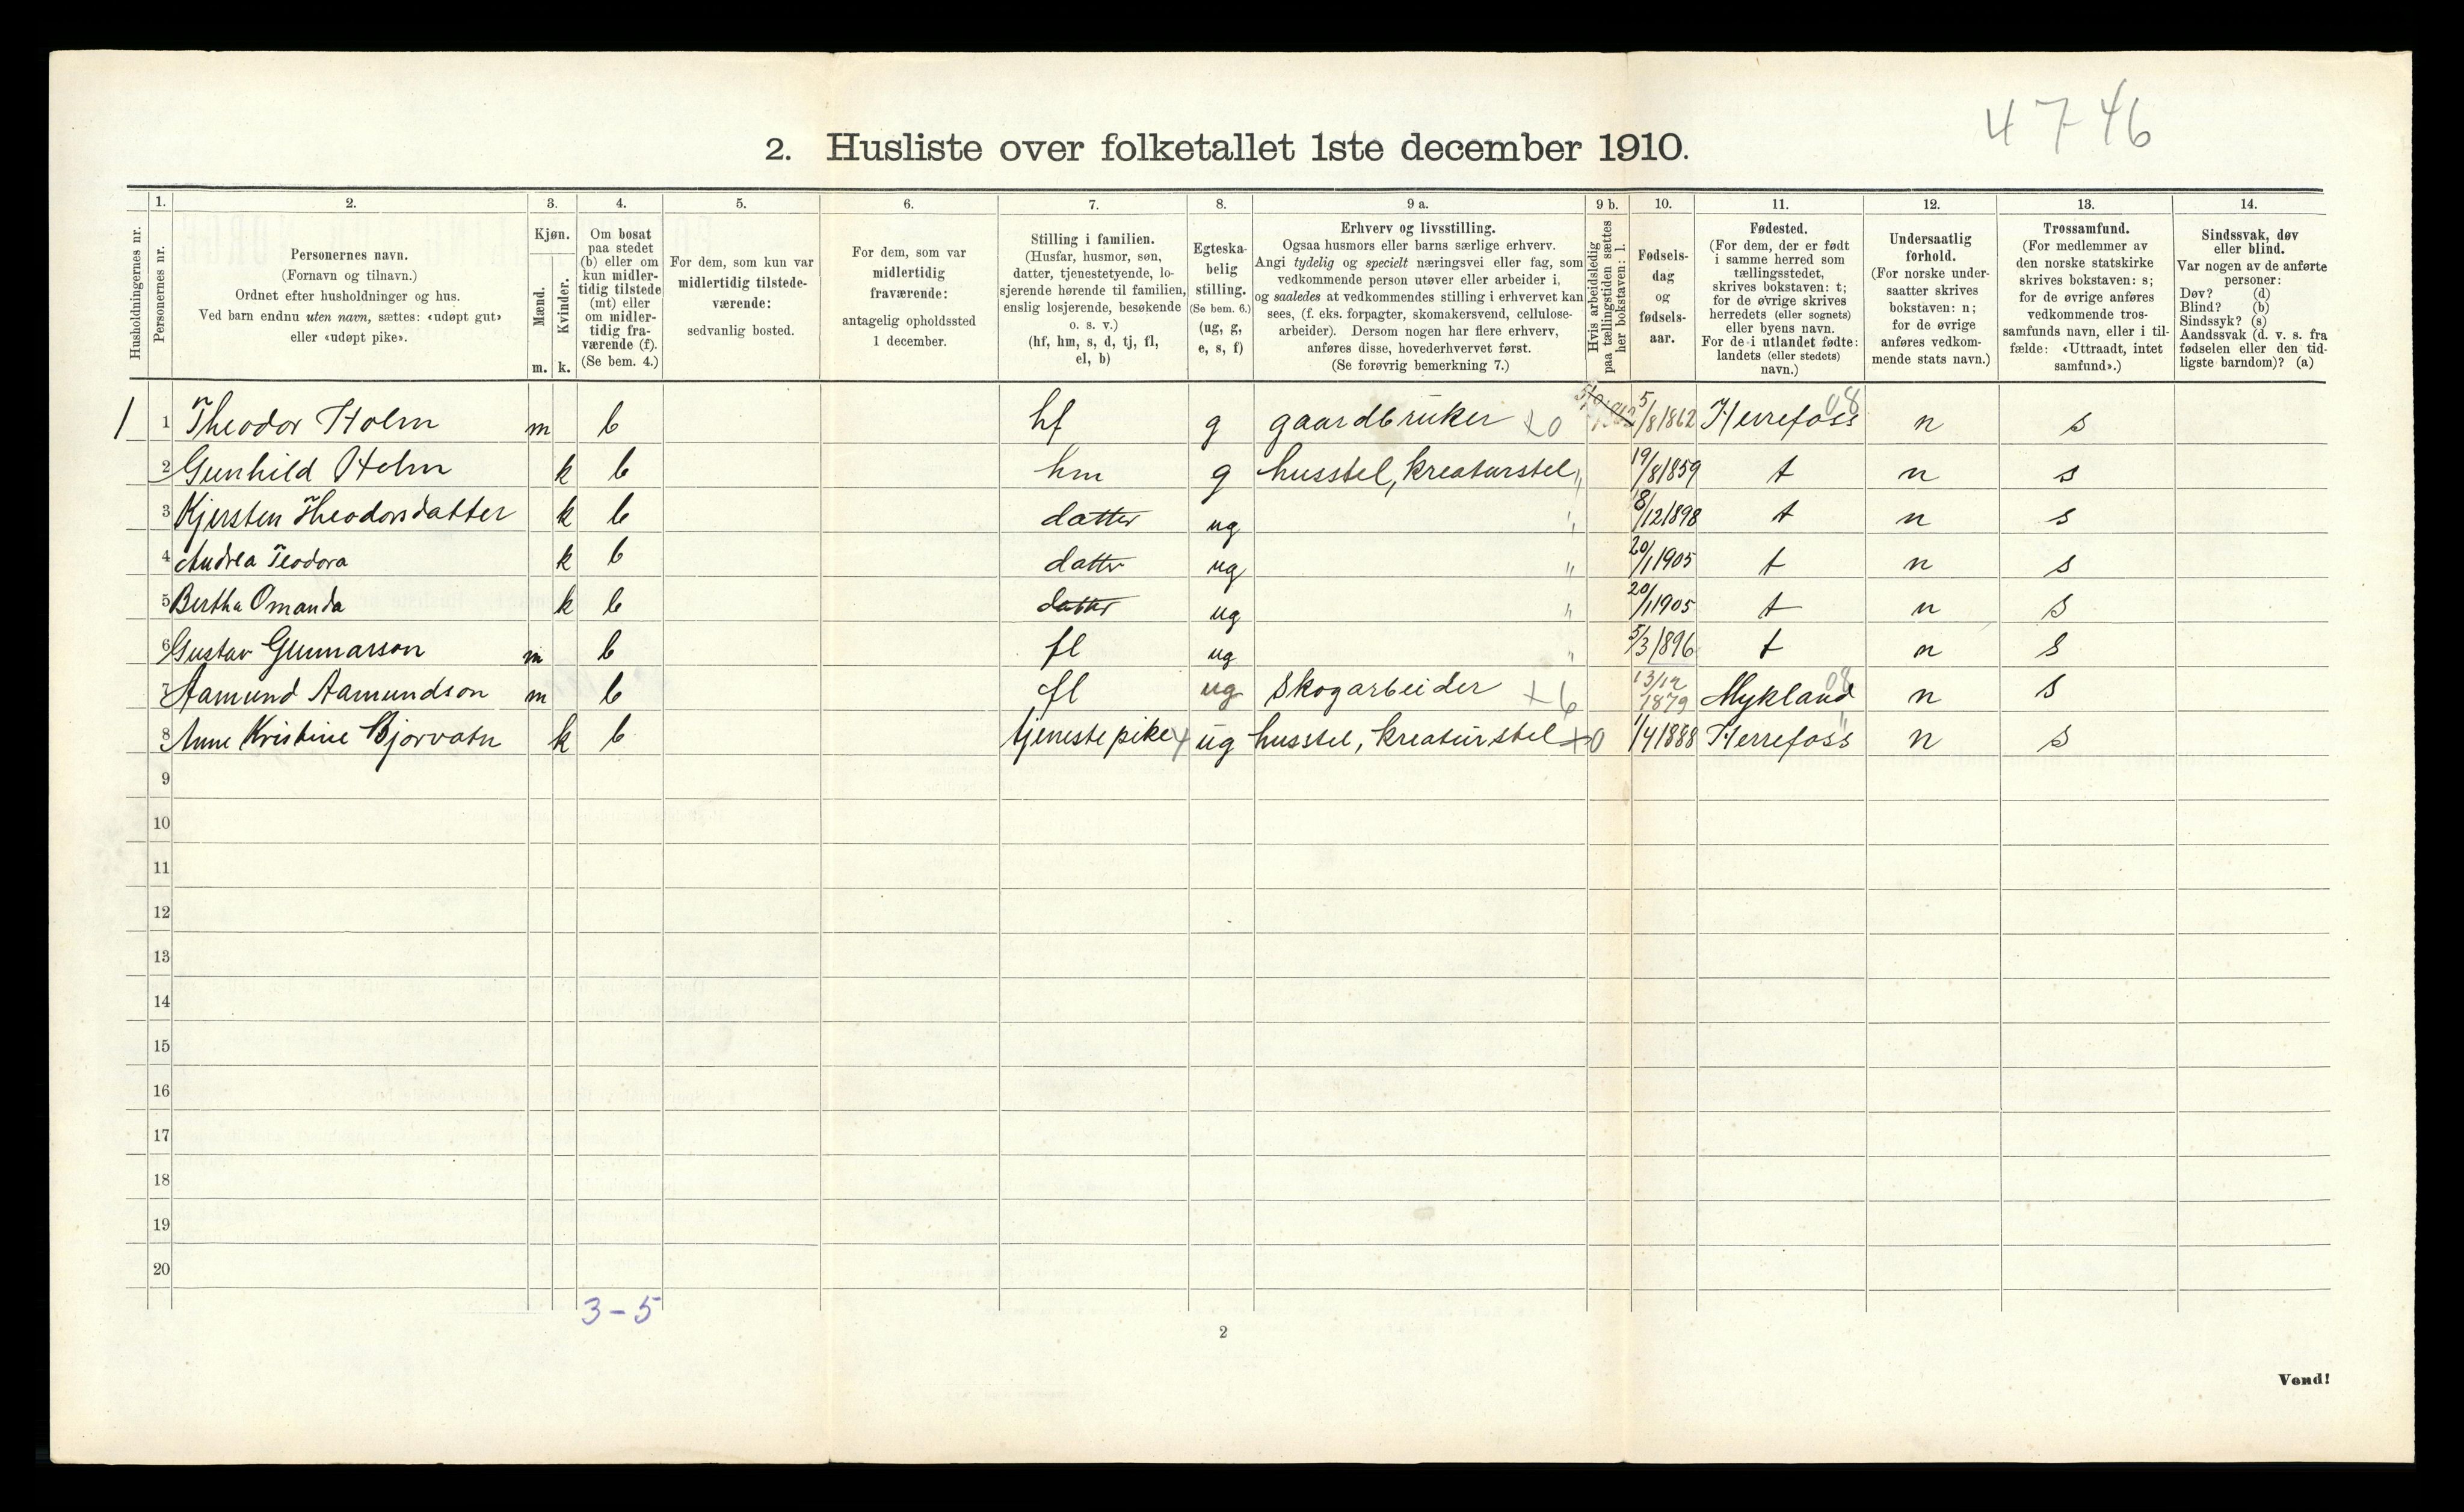 4746
2. Husliste over folketallet 1ste december 1910.
1. 2. 3. 4. 5. 6. 7. 8. 9 a. 9 b. 10. 11. 12. 13. 14.
Husholdningernes nr.
Personernes nr.
Personernes navn.
(Fornavn og tilnavn.)
Ordnet efter husholdninger og hus.
Ved barn endnu uten navn, sættes: «udøpt gut»
eller «udøpt pike».
Kjøn.
Mænd.
Kvinder.
m. k.
Om bosat
paa stedet
(b) eller om
kun midler-
tidig tilstede
(mt) eller
om midler-
tidig fra-
værende (f).
(Se bem. 4.)
For dem, som kun var
midlertidig tilstede-
værende:
sedvanlig bosted.
For dem, som var
midlertidig
fraværende:
antagelig opholdssted
1 december.
Stilling i familien.
(Husfar, husmor, søn,
datter, tjenestetyende, lo-
sjerende hørende til familien,
enslig losjerende, besøkende
o. s. v.)
(hf, hm, s, d, tj, fl,
el, b)
Egteska-
belig
stilling.
(Se bem. 6.)
(ug, g,
e, s, f)
Erhverv og livsstilling.
Ogsaa husmors eller barns særlige erhverv.
Angi tydelig og specielt næringsvei eller fag, som
vedkommende person utøver eller arbeider i,
og saaledes at vedkommendes stilling i erhvervet kan
sees, (f. eks. forpagter, skomakersvend, cellulose-
arbeider). Dersom nogen har flere erhverv,
anføres disse, hovederhvervet først.
(Se forøvrig bemerkning 7.)
Hvis arbeidsledig
paa tællingstiden sættes
her bokstaven: l.
Fødsels-
dag
og
fødsels-
aar.
Fødested.
(For dem, der er født
i samme herred som
tællingsstedet,
skrives bokstaven: t;
for de øvrige skrives
herredets (eller sognets)
eller byens navn.
For de i utlandet fødte:
landets (eller stedets)
navn.)
Undersaatlig
forhold.
(For norske under-
saatter skrives
bokstaven: n;
for de øvrige
anføres vedkom-
mende stats navn.)
Trossamfund.
(For medlemmer av
den norske statskirke
skrives bokstaven: s;
for de øvrige anføres
vedkommende tros-
samfunds navn, eller i til-
fælde: «Uttraadt, intet
samfund».)
Sindssvak, døv
eller blind.
Var nogen av de anførte
personer:
Døv? (d)
Blind? (b)
Sindssyk? (s)
Aandssvak (d. v. s. fra
fødselen eller den tid-
ligste barndom)? (a)
1 1 Theodor Holm m b hf g gaardbruker x0 5/8 1862 Herrefoss 08 n s
2 Gunhild Holm k b hm g husstel, kreaturstel " 19/8 1859 t n s
3 Kjersten Theodorsdatter k b datter ug " 8/12 1898 t n s
4 Andrea Teodora k b datter ug " 20/1 1905 t n s
5 Bertha Omanda k b datter ug " 20/1 1905 t n s
6 Gustav Gunnarson m b fl ug " 5/3 1896 t n s
7 Aamund Aamundson m b fl ug skogarbeider x6 13/12 1879 Mykland 08 n s
8 Anne Kristine Bjorvatn k b tjenestepike x ug husstel, kreaturstel x0 1/4 1888 Herrefoss " n s
9
10
11
12
13
14
15
16
17
18
19
20
3-5
2
Vend!